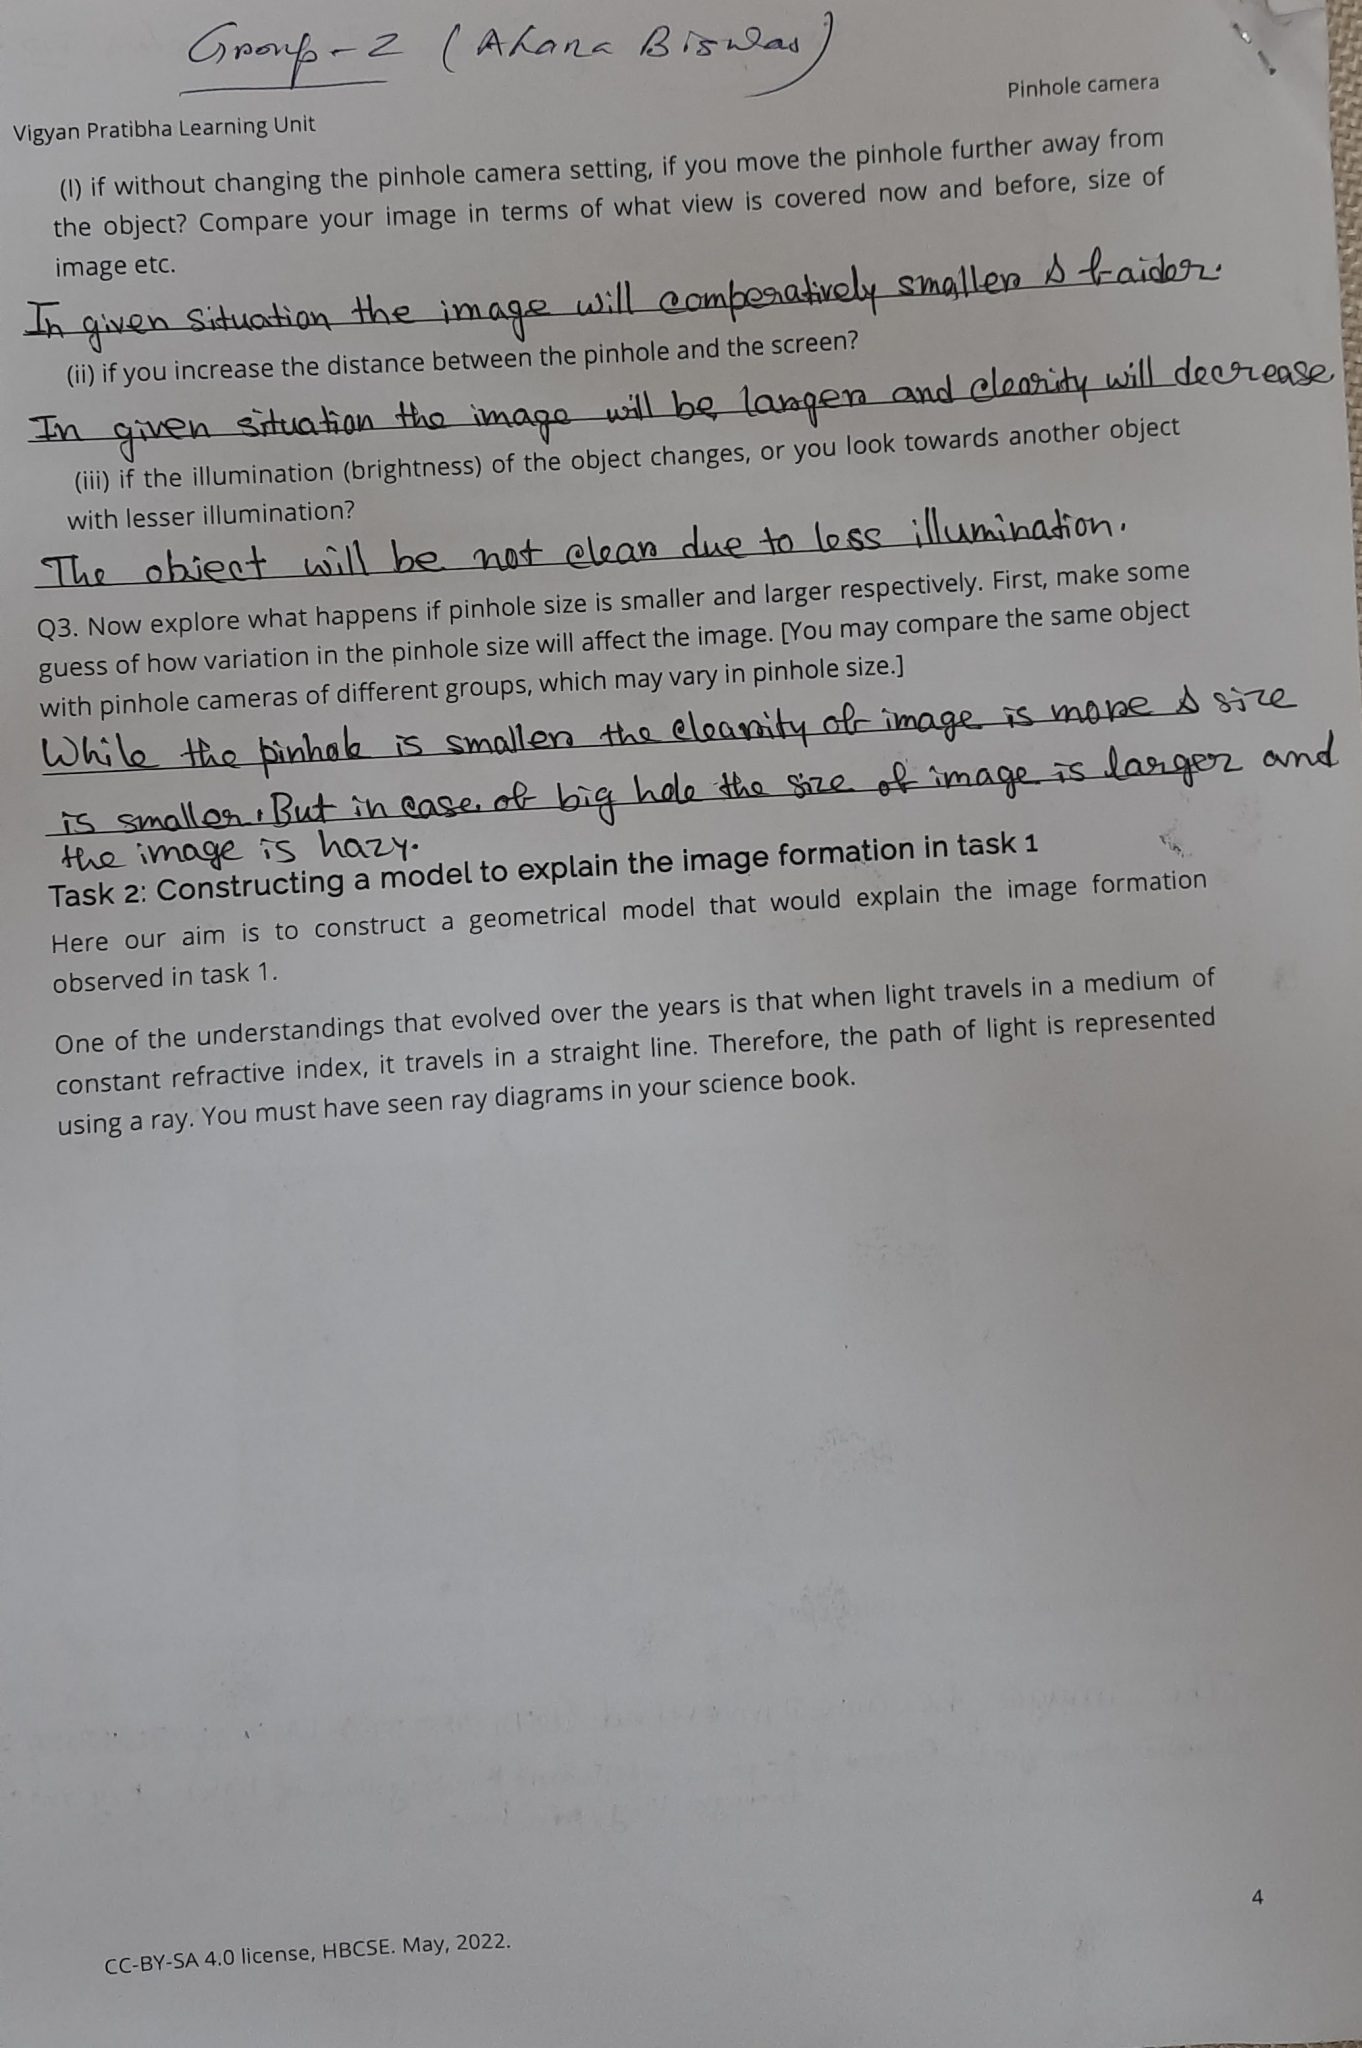 Group-2 (Ahana Biswas)
Pinhole camera
Vigyan Pratibha Learning Unit
(I) if without changing the pinhole camera setting, if you move the pinhole further away from
the object? Compare your image in terms of what view is covered now and before, size of
image etc.
In given situation the image will comperatively smaller & faider.
(ii) if you increase the distance between the pinhole and the screen?
In given situation the image will be larger and clearity will decrease
(iii) if the illumination (brightness) of the object changes, or you look towards another object
with lesser illumination?
The object will be not clear due to less illumination.
Q3. Now explore what happens if pinhole size is smaller and larger respectively. First, make some
guess of how variation in the pinhole size will affect the image. [You may compare the same object
with pinhole cameras of different groups, which may vary in pinhole size.]
While the pinhole is smaller the clearity of image is more & size
is smaller. But in case of big hole the size of image is larger and
the image is hazy.
Task 2: Constructing a model to explain the image formation in task 1
Here our aim is to construct a geometrical model that would explain the image formation
observed in task 1.
One of the understandings that evolved over the years is that when light travels in a medium of
constant refractive index, it travels in a straight line. Therefore, the path of light is represented
using a ray. You must have seen ray diagrams in your science book.
4
CC-BY-SA 4.0 license, HBCSE. May, 2022.